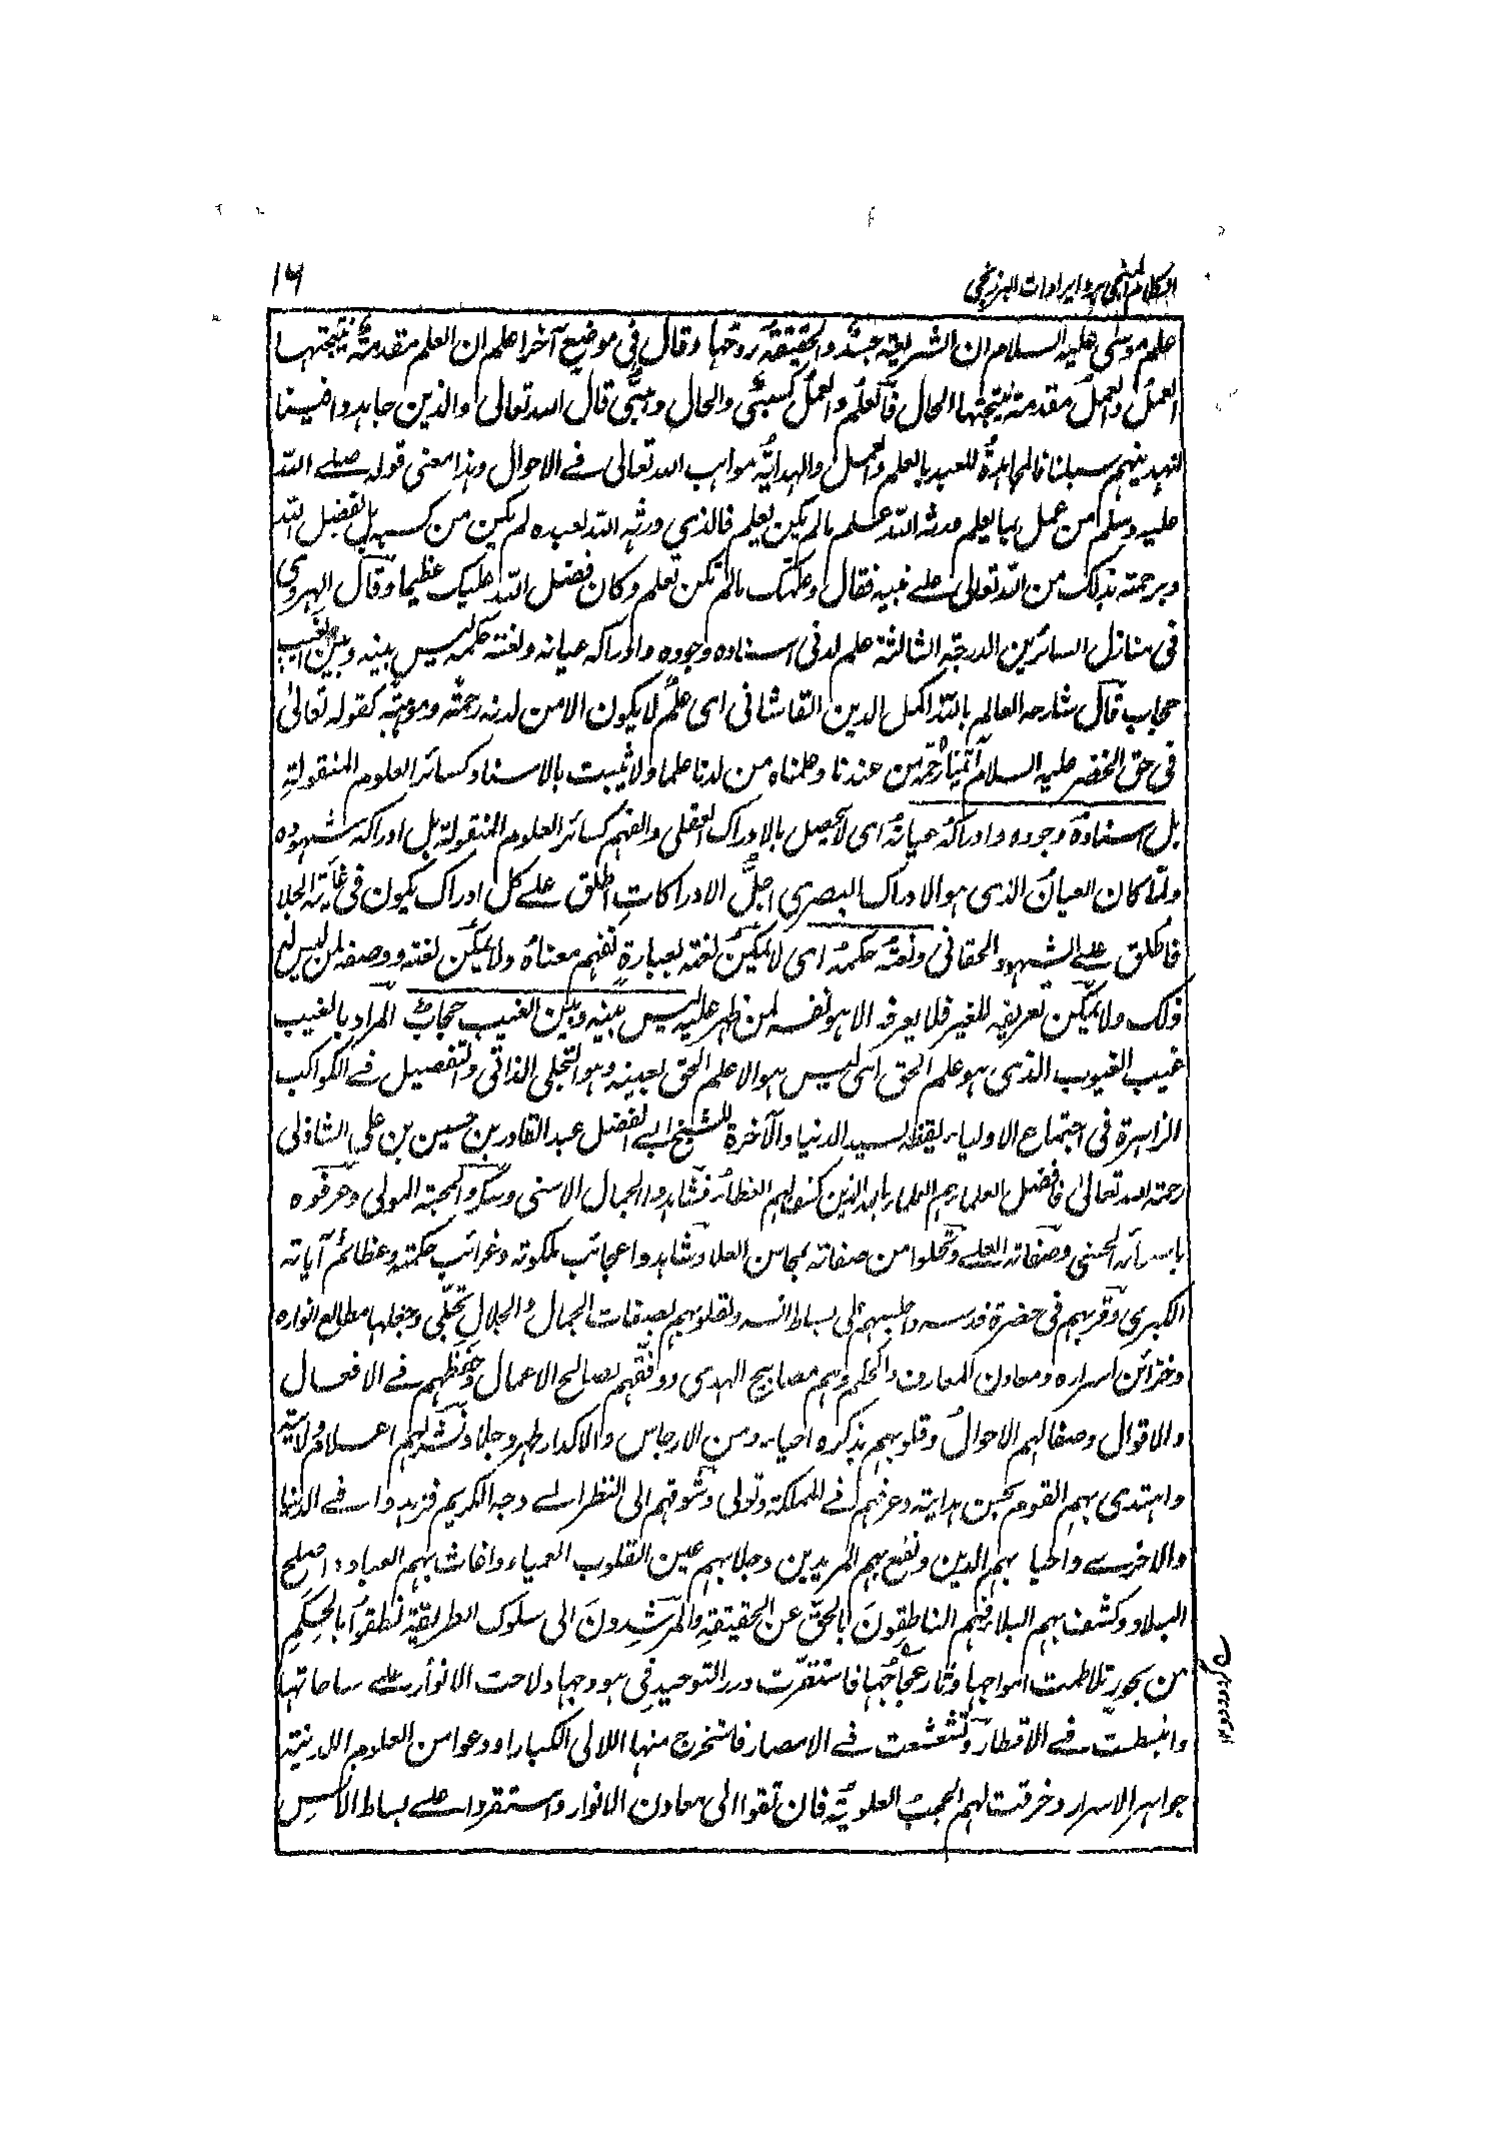 الكلام المنجي برد ايرادات البرزنجي
١٦
علم موسى عليه السلام ان الشريعة جسد والحقيقة روحها وقال في موضع آخر اعلم ان العلم مقدمة نتيجتها
العمل والعمل مقدمة نتيجتها الحال فالعلم والعمل كسبي والحال وهبي قال الله تعالى والذين جاهدوا فينا
لنهدينهم سبلنا فالمجاهدة للعبد بالعلم والعمل والهداية مواهب الله تعالى في الاحوال وهذا معنى قوله صلى الله
عليه وسلم من عمل بما يعلم ورثه الله علم ما لم يكن يعلم فالذي ورثه الله لعبده لم يكن من كسبه بل بفضل الله
وبرحمته بذلك من الله تعالى على نبيه فقال وعلمك ما لم تكن تعلم وكان فضل الله عليك عظيما وقال الهروي
في منازل السائرين الدرجة الثالثة علم لدني اسناده وجوده وادراكه عيانه ونعته حكمه ليس بينه وبين الغيب
حجاب قال شارحه العالم بالله اكمل الدين القاشاني اى علم لا يكون الا من لدنه رحمة وموهبة كقوله تعالى
في حق الخضر عليه السلام آتيناه رحمة من عندنا وعلمناه من لدنا علما ولا يثبت بالاسناد كسائر العلوم المنقولة
بل اسناده وجوده وادراكه عيانه اى لا يحصل بالادراك العقلي والفهم كسائر العلوم المنقولة بل ادراكه شهوده
ولما كان العيان الذى هو الادراك البصرى اجل الادراكات اطلق على كل ادراك يكون في غاية الجلا
فاطلق على الشهود الحقاني ونعته حكمه اى لا يمكن نعته بعبارة تفهم معناه ولا يمكن نعته ووصفه لمن ليس له
ذلك ولا يمكن تعريفه للغير فلا يعرفه الا هو نفسه لمن ظهر عليه ليس بينه وبين الغيب حجاب المراد بالغيب
غيب الغيوب الذى هو علم الحق اى ليس هو الا علم الحق بعينه وهو التجلي الذاتي والتفصيل في الكواكب
الزاهرة في اجتماع الاولياء يقظة بسيد الدنيا والآخرة للشيخ ابي الفضل عبد القادر بن حسين بن علي الشاذلي
رحمه الله تعالى فافضل العلماء هم العلماء بالله الذين كشف لهم الغطاء فشاهدوا الجمال الاسنى وسكروا لمحبة المولى وعرفوه
باسمائه الحسنى وصفاته العلى وتحلوا من صفاته بمحاسن العلا وشاهدوا عجائب ملكوته وغرائب حكمته وعظائم آياته
الكبرى وقربهم في حضرة قدسه واجلسهم الى بساط انسه ولقلوبهم بصفات الجمال والجلال تجلى وجعلها مطالع انواره
وخزائن اسراره ومعادن المعارف والحكم وهم مصابيح الهدى ووفقهم لصالح الاعمال وحفظهم في الافعال
والاقوال وصفا لهم الاحوال وقلوبهم بذكره احيا ومن الارجاس والاكدار طهر وجلا ونشر لهم اعلام ولايته
واهتدى بهم القوم بحسن هدايته وعزهم في المملكة وتولى وشوقهم الى النظر الى وجه الكريم فزهدوا في الدنيا
والاخرى واحيا بهم الدين ونفع بهم المريدين وجلا بهم عين القلوب العمياء واغاث بهم العباد واصلح
البلاد وكشف بهم البلا فهم الناطقون بالحق عن الحقيقة والمرشدون الى سلوك الطريقة نطقوا بالحكم
من بحور تلاطمت امواجها وثار عجاجها فاستقرت درر التوحيد في هووجها ولاحت الانوار على ساحاتها
وانبطت في الاقطار وتشعشعت في الامصار فاستخرج منها اللالى الكبار اودعوا من العلوم اللدنية
جواهر الاسرار وخرقت لهم الحجب العلوية فان تقوا الى معادن الانوار واستقروا على بساط الانس